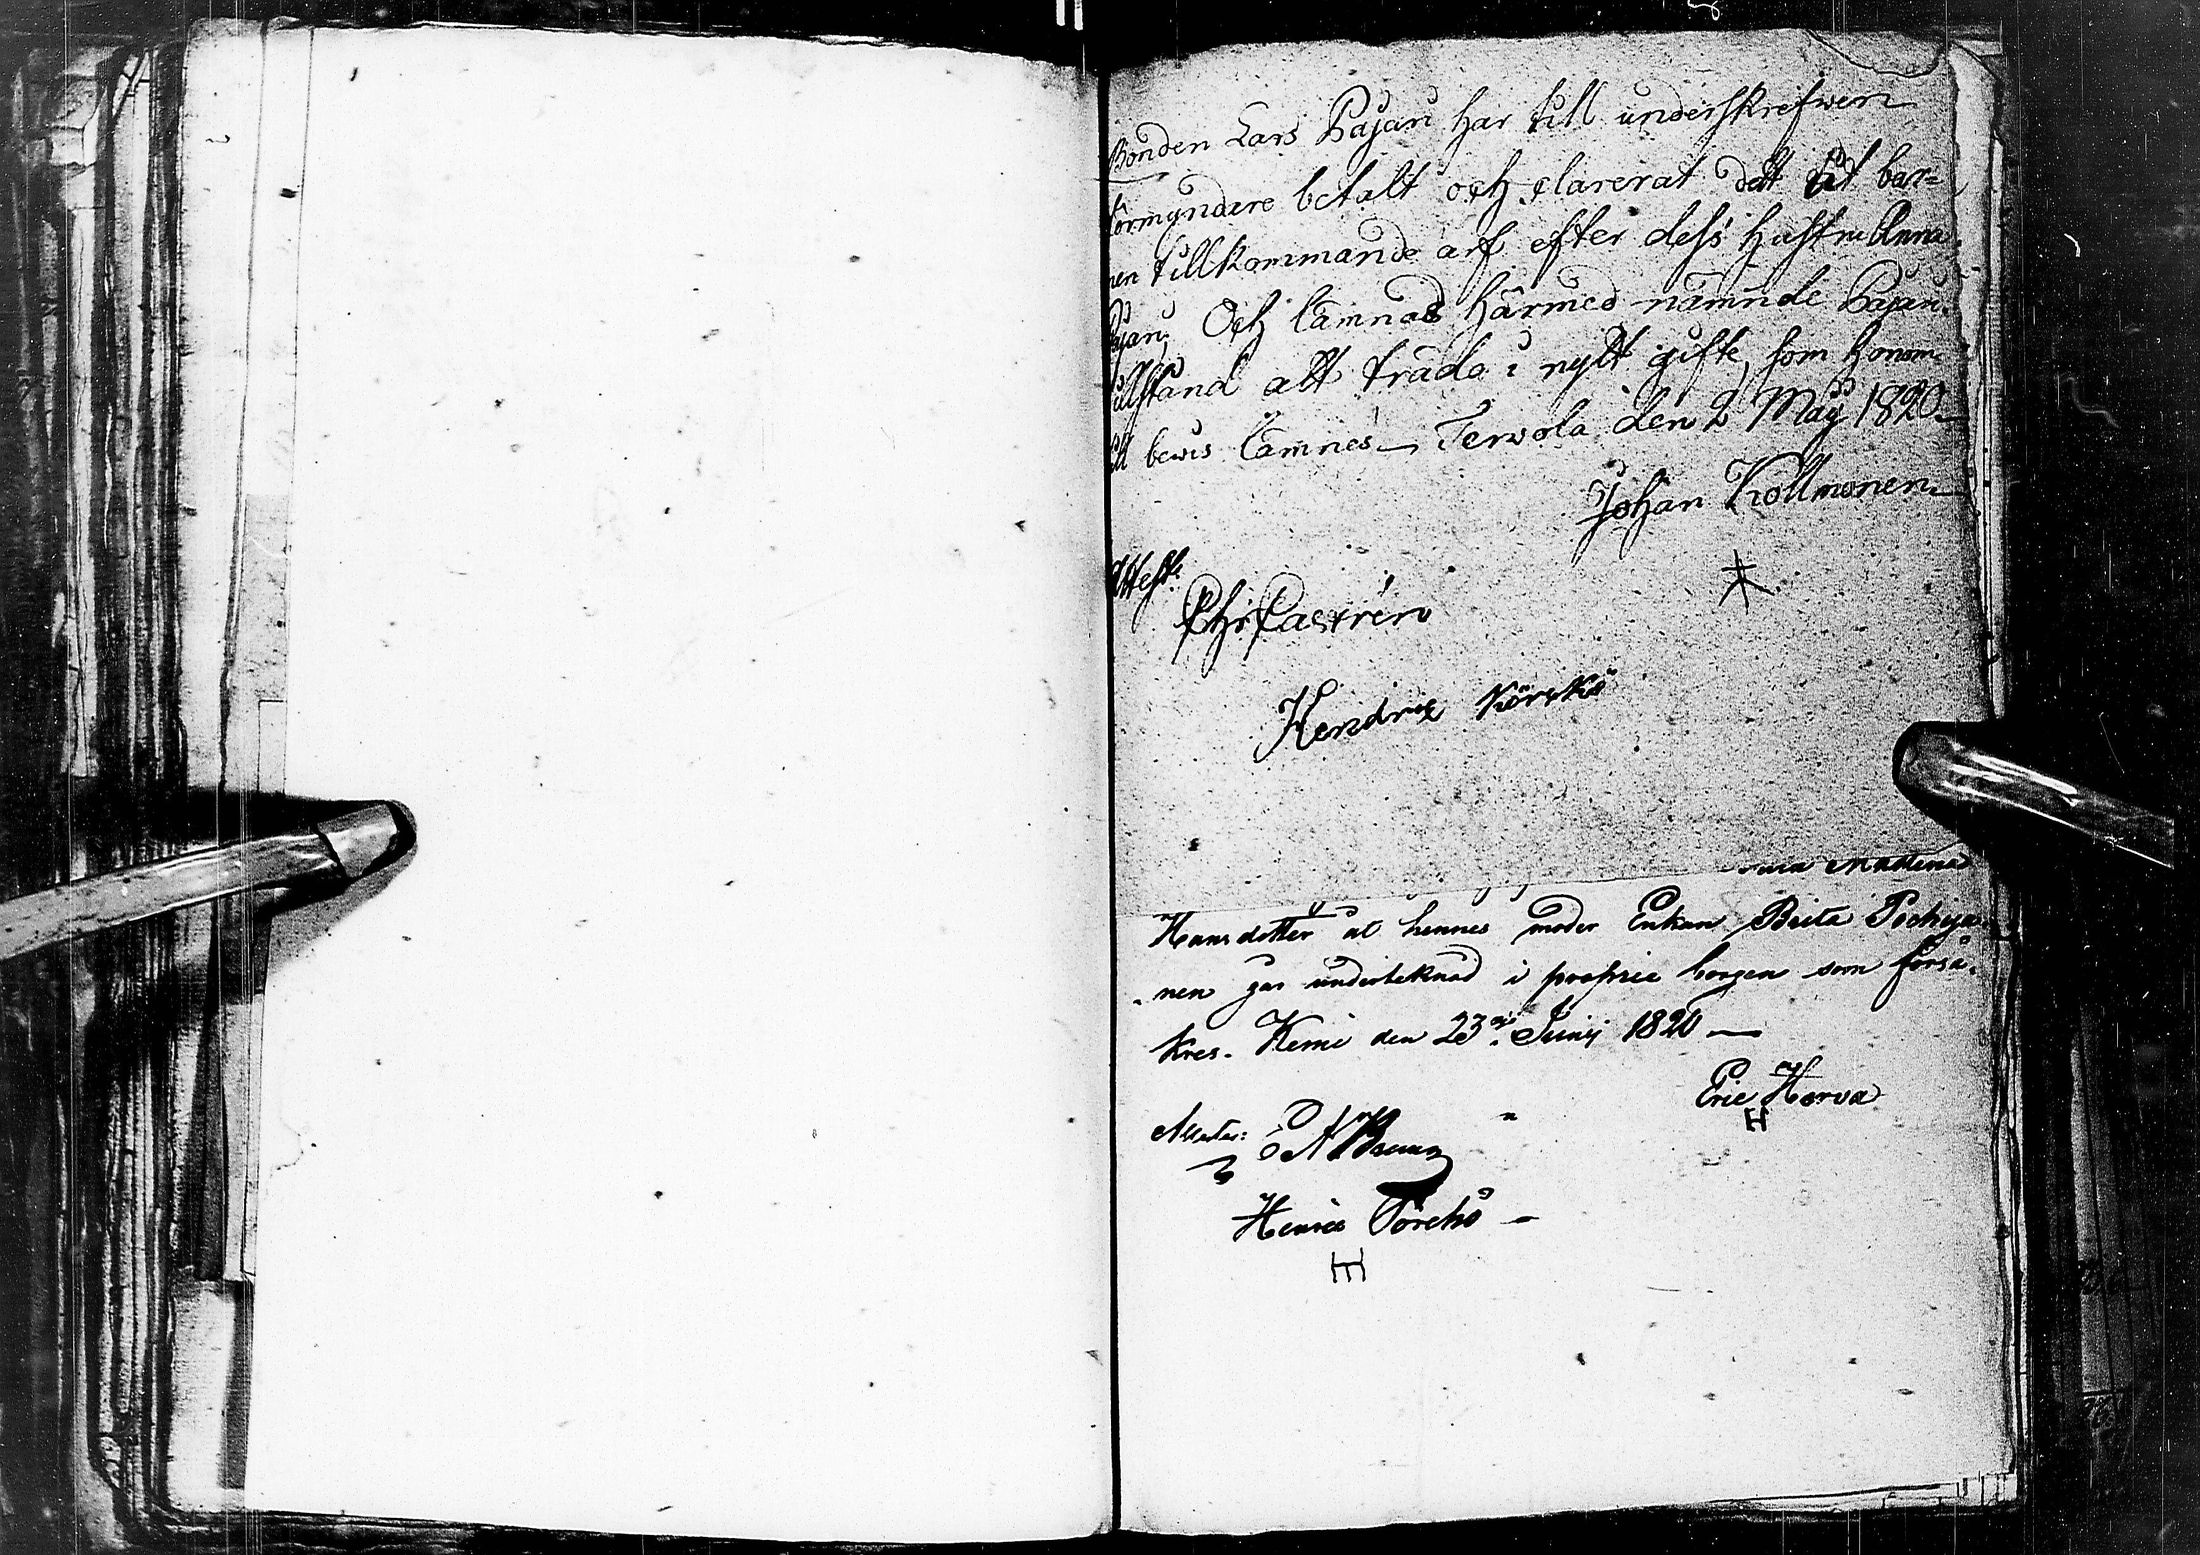 Bonden Lars Pajari har till underskrefwen
förmyndare betalt och clarerat dett åt bar=
nen tillkommande arf efter dess hustru Anna
Pajari, Och lämnas härmed nämnde Pajari
tillstånd att träda i nytt gifte, som honom
till bewis lämnes Terwola den 2 Maij 1820
Johan Kollmonen
Attest:
Chr Castrén
Hendric Körkö
Hansdotter at hennes moder Enkan Brita Pochja=
nen gar underteknad i proprie borgen som försä=
kres. Kemi den 23 Junij 1820
Eric Harva
H
Attester:
Henric Törchö